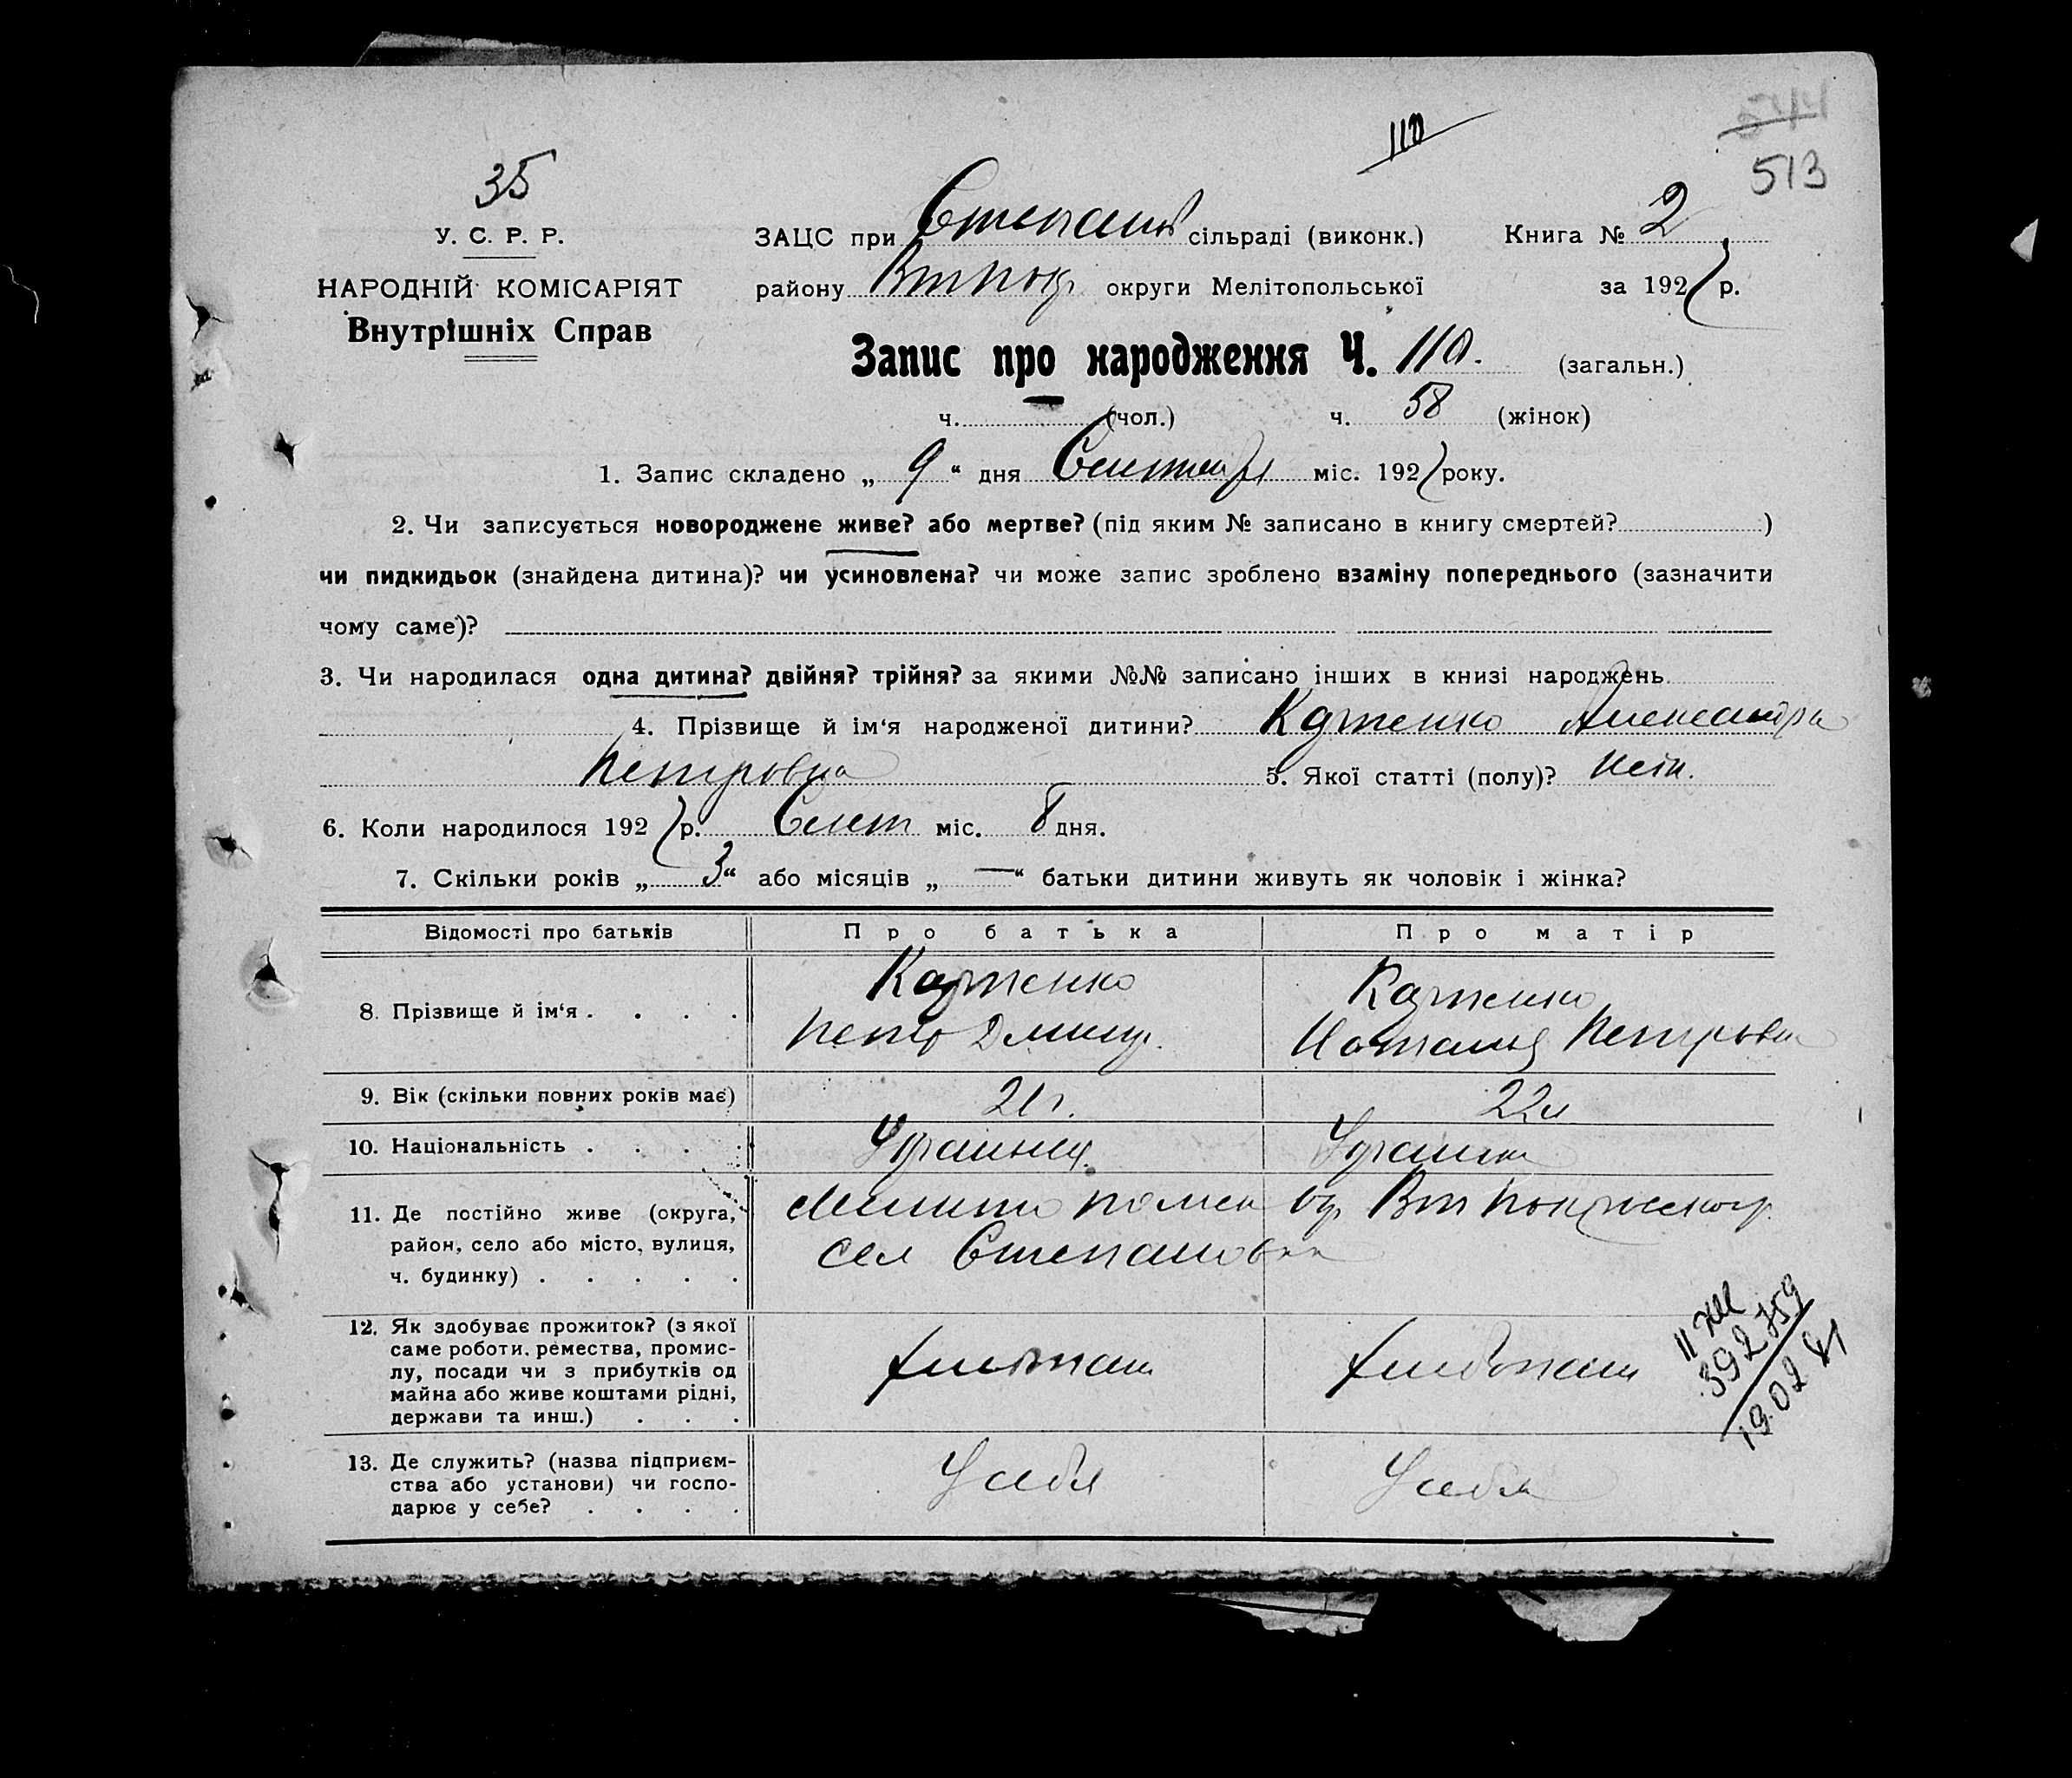 544
110
513
35
У. С. Р. Р.
НАРОДНІЙ КОМІСАРІЯТ
Внутрішніх Справ
ЗАЦС при Степанов сільраді (виконк.) Книга № 2
району Вт Покр. округи Мелітопольської за 192 р.
Запис про народження Ч. 110. (загальн.)
ч. (чол.) ч. 58 (жінок)
1. Запис складено „ 9 “ дня Сентября міс. 192 року.
2. Чи записується новороджене живе? або мертве? (під яким № записано в книгу смертей? )
чи пидкидьок (знайдена дитина)? чи усиновлена? чи може запис зроблено взаміну попереднього (зазначити
чому саме)?
3. Чи народилася одна дитина? двійня? трійня? за якими №№ записано інших в книзі народжень
4. Прізвище й ім‘я народженої дитини? Александра
Петровна 5. Якої статті (полу)?
6. Коли народилося 192 р. Сент міс. 8 дня.
7. Скільки років „ 3 “ або місяців „ — “ батьки дитини живуть як чоловік і жінка?
Відомості про батьків Про батька Про матір
8. Прізвище й ім‘я . . . .
Петр Дмитр. Наталия Петровна
9. Вік (скільки повних років має) 21 г. 22 л
10. Національність . . . . Украинец Украинка
11. Де постійно живе (округа,
район, село або місто, вулиця,
ч. будинку) . . . . .
Мелитополск Окр Вт Покровског р.
сел Степановка
12. Як здобуває прожиток? (з якої
саме роботи, ремества, промис-
лу, посади чи з прибутків од
майна або живе коштами рідні,
держави та инш.) . . .
хлебопаш хлебопаш
13. Де служить? (назва підприєм-
ства або установи) чи госпо-
дарює у себе? . . . .
У себя У себя
392759
19.02 81